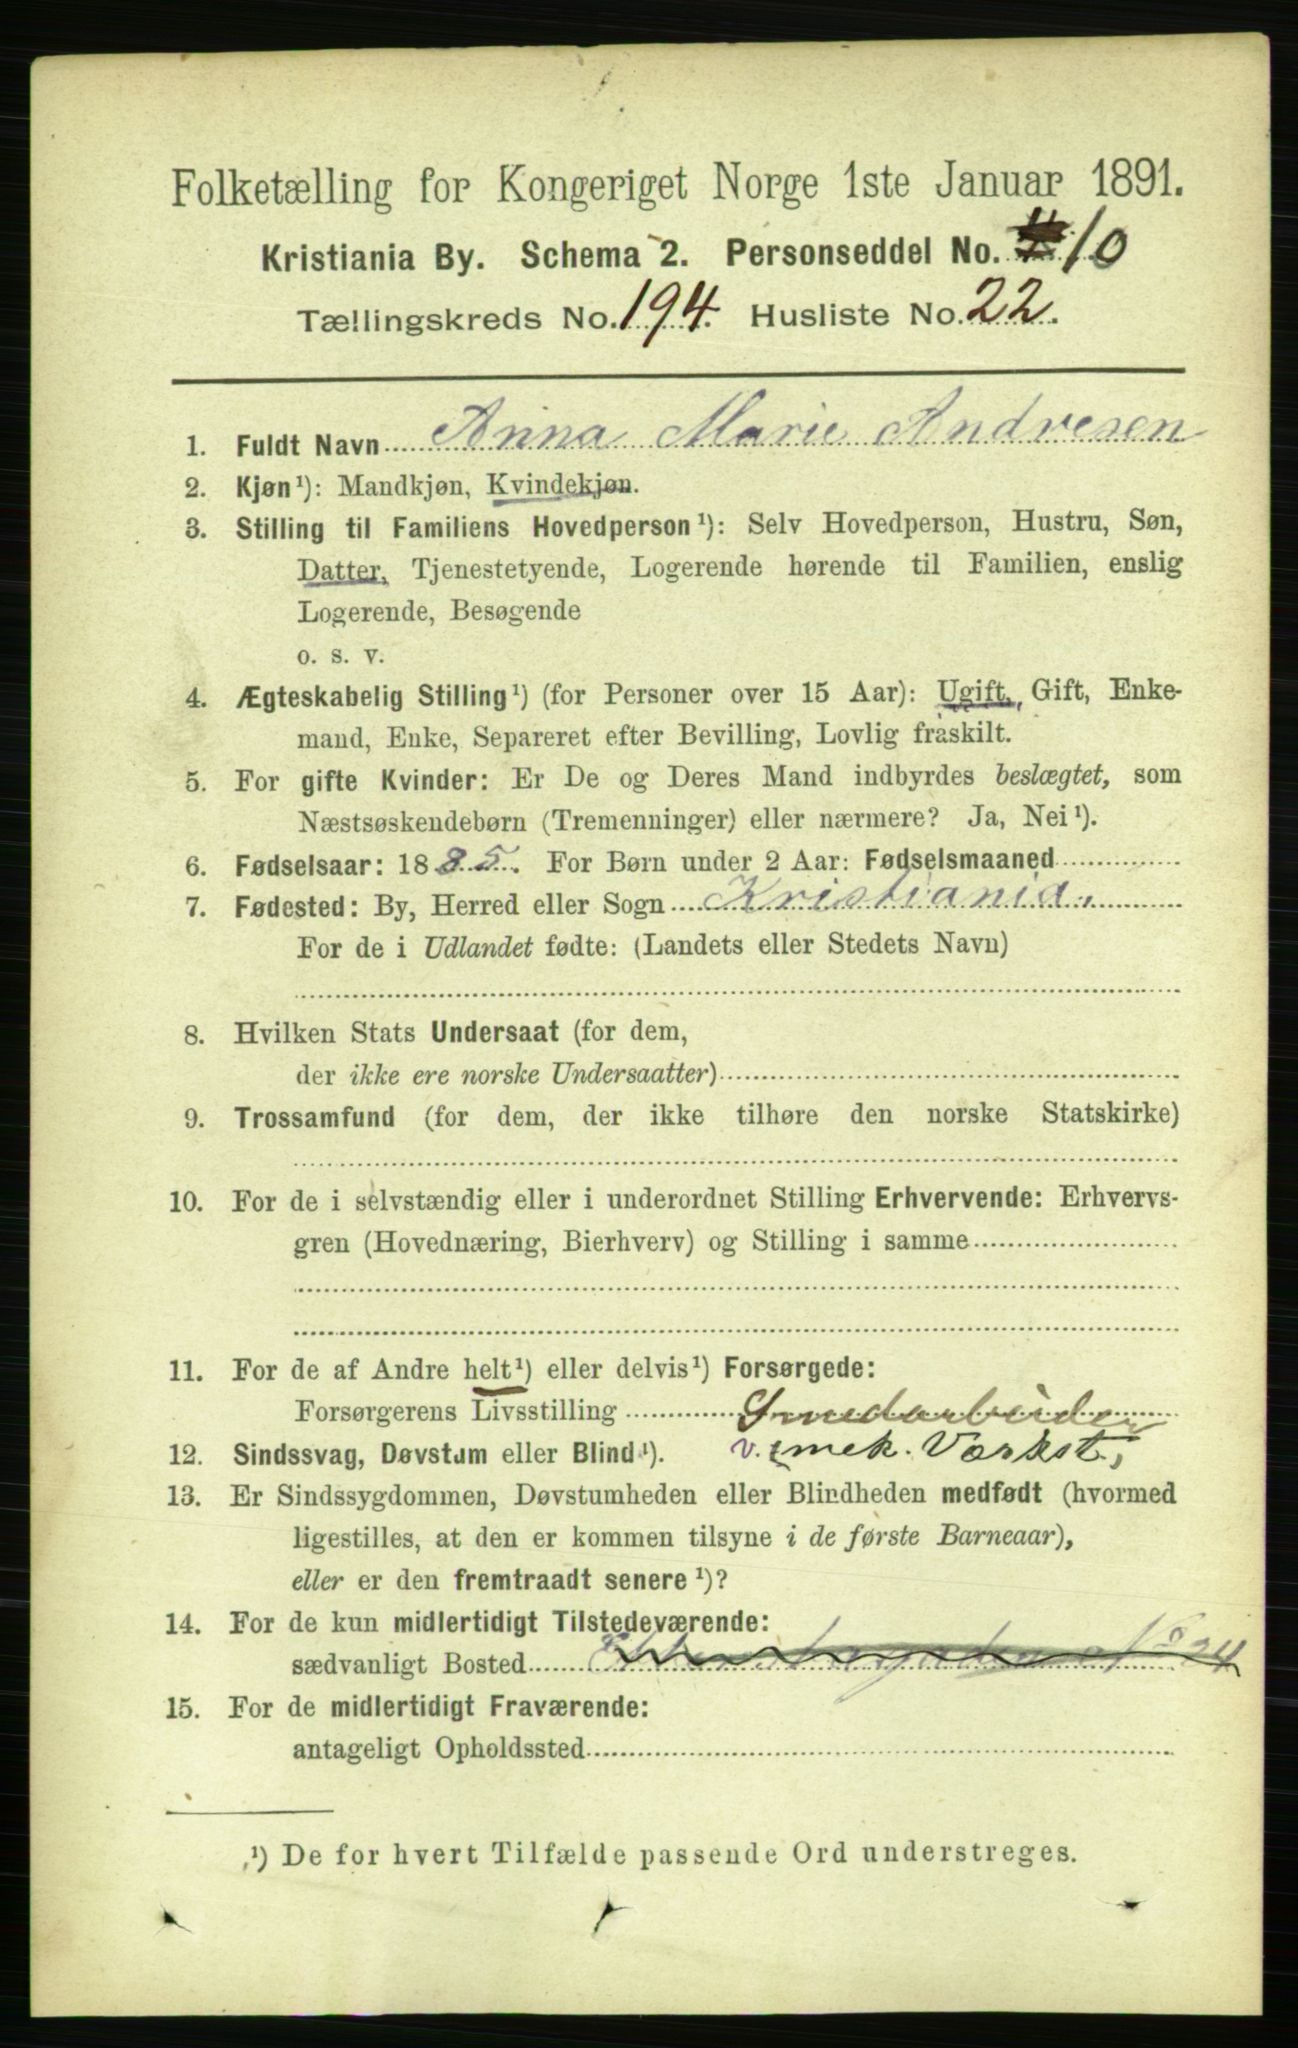 Folketælling for Kongeriget Norge 1ste Januar 1891.
Kristiania By. Schema 2. Personseddel No. 10
Tællingskreds No. 194. Husliste No. 22.
1. Fuldt Navn Anna Marie Andresen
2. Kjøn¹): Mandkjøn, Kvindekjøn.
3. Stilling til Familiens Hovedperson¹): Selv Hovedperson, Hustru, Søn,
Datter, Tjenestetyende, Logerende hørende til Familien, enslig
Logerende, Besøgende
o. s. v.
4. Ægteskabelig Stilling¹) (for Personer over 15 Aar): Ugift, Gift, Enke-
mand, Enke, Separeret efter Bevilling, Lovlig fraskilt.
5. For gifte Kvinder: Er De og Deres Mand indbyrdes beslægtet, som
Næstsøskendebørn (Tremenninger) eller nærmere? Ja, Nei¹).
6. Fødselsaar: 1885. For Børn under 2 Aar: Fødselsmaaned
7. Fødested: By, Herred eller Sogn Kristiania.
For de i Udlandet fødte: (Landets eller Stedets Navn)
8. Hvilken Stats Undersaat (for dem,
der ikke ere norske Undersaatter)
9. Trossamfund (for dem, der ikke tilhøre den norske Statskirke)
10. For de i selvstændig eller i underordnet Stilling Erhvervende: Erhvervs-
gren (Hovednæring, Bierhverv) og Stilling i samme
11. For de af Andre helt¹) eller delvis¹) Forsørgede:
Forsørgerens Livsstilling Smedarbeider
12. Sindssvag, Døvstum eller Blind¹). v. mek. Værkst.
13. Er Sindssygdommen, Døvstumheden eller Blindheden medfødt (hvormed
ligestilles, at den er kommen tilsyne i de første Barneaar),
eller er den fremtraadt senere¹)?
14. For de kun midlertidigt Tilstedeværende:
sædvanligt Bosted No 24
15. For de midlertidigt Fraværende:
antageligt Opholdssted
¹) De for hvert Tilfælde passende Ord understreges.